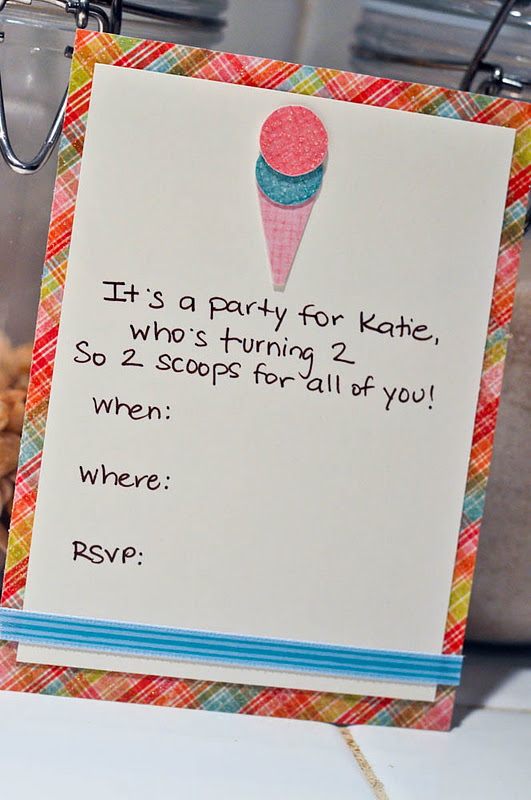 It's a party for Katie,
who's turning 2
So 2 scoops for all of you!
when:
where:
RSVP: